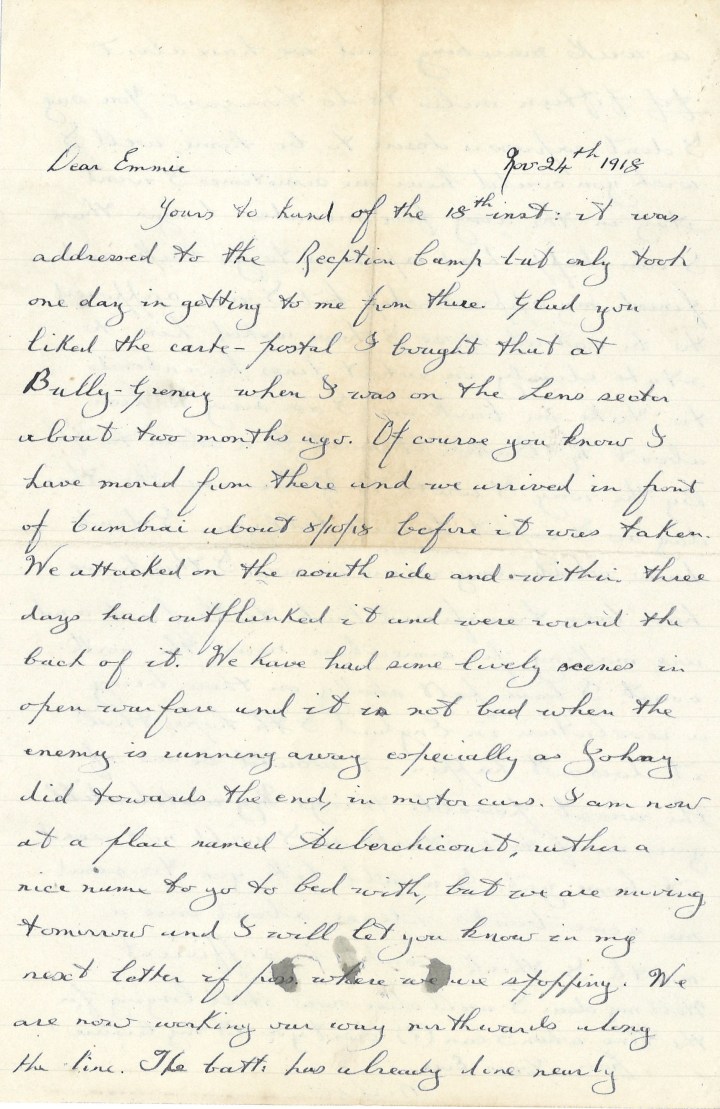 Dear Emmie Nov 24th 1918
Yours to hand of the 18th inst: it was
addressed to the Reception Camp but only took
one day in getting to me from there. Glad you
liked the carte-postal I bought that at
Bully-Grenay when I was on the Lens sector
about two months ago. Of course you know I
have moved from there and we arrived in front
of Cambrai about 8/10/18 before it was taken.
We attacked on the south side and within three
days had outflanked it and were round the
back of it. We have had some lively scenes in
open warfare and it is not bad when the
enemy is running away especially as Johnny
did towards the end, in motor cars. I am now
at a place named Auberchicourt, rather a
nice name to go to bed with, but we are moving
tomorrow and I will let you know in my
next letter if poss. where we are stopping. We
are now working our way northwards along
the line. The batt: has already done nearly